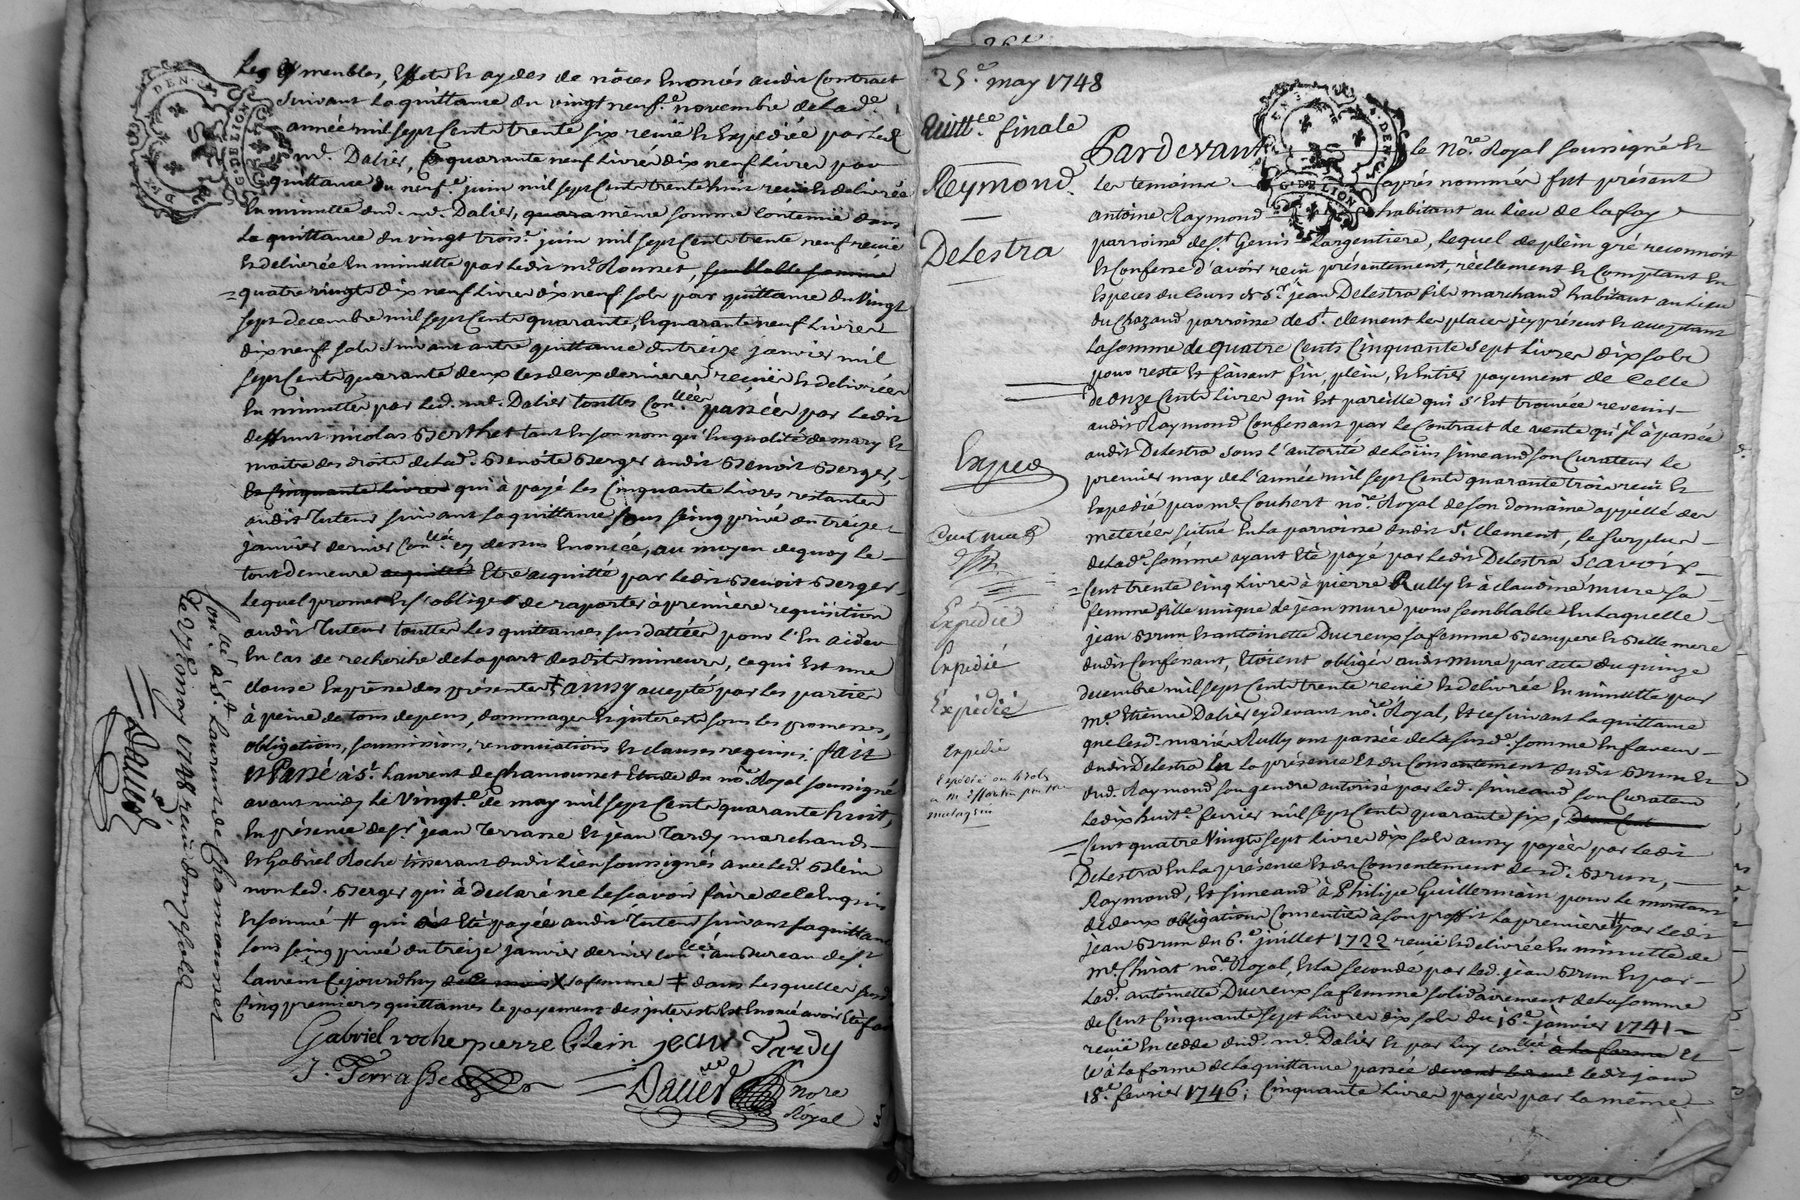 Les meubles, Effets et aydes de nôces Enoncés audit Contract
suivant la quittance du vingt neuf.e novembre de lad.e
année mil sept Cents trente six reçuë et Expediée par led.
m.e Dalier, quarante neuf Livres dix neuf Livres par
quittance du neuf.e juin mil sept Cents trente huit reçuë et délivrée
En minutte dud. m.e Dalier, même somme Contenüe dans
la quittance du vingt trois.e juin mil sept Cents trente neuf reçuë
et délivrée En minutte par ledit m.e Rousset, semblable somme
quatre vingts dix neuf Livres dix neuf sols par quittance du Vingt
sept decembre mil sept Cents quarante, et quarante neuf Livres
dix neuf sols suivant autre quittance du treize janvier mil
sept Cents quarante deux les deux dernieres reçuës et délivrées
En minuttes par led. m.e Dalier touttes Con.llées passées par ledit
deffunt nicolas Berthet tant En son nom qu'En qualité de mary et
maitre des droits de lad.e Benoite Berger audit Benoit Berger,
et Cinquante Livres qui à payé les Cinquante Livres restantes
audit Tuteur suivant la quittance sous seing privé du treize
janvier dernier Con.llée cy dessus Enoncée, au moyen de quoy le
tout demeure acquitté Etre acquitté par ledit Benoit Berger
Lequel promet et s'oblige de raporter à premiere requisition
audit Tuteur touttes les quittances sus dattées pour l'En aider
En cas de recherche de la part desdits mineurs, ce qui Est une
clause Expresse des présentes aussy accepté par les parties
à peine de tous depens, dommages et interests sous les promesses,
obligations, soumissions, renonciations et clauses requises; fait
et Passé à S.t Laurent de Chamousset Etude du no.re Royal soussigné
avant midy le Vingt.e de may mil sept Cents quarante huit,
En présence de S.r jean Terrasse et jean Tardy marchands
et Gabriel Roche tisserant dudit Lieu soussignés avec led. Blein
non led. Berger qui à declaré ne le sçavoir faire de ce Enquis
et sommé # qui ont Eté payées audit Tuteur suivant sa quittance
sous seing privé du treize janvier dernier con.llée au Bureau de S.t
Laurent Cejourdhuy de ce mois X sa femme ‡ dans lesquelles susd.
Cinq premieres quittances le payement des interests Est Enoncé avoir Eté fait
Gabriel roche pierre Blein jean Tardy
J. Terrasse Dalier nore
Royal
Con.llé à S.t Laurent de Chamousset
le 27e may 1748 reçu douze sols
Dalier
25.e may 1748
Quitt.ce finale
Reymond.
Delestra
Exped
Expedié
Expedié
Expedié
expedié
Pardevant le No.re Royal soussigné et
les temoins après nommés fut présent
antoine Raymond habitant au Lieu de Lafay
parroisse de S.t Genis Largentiere, lequel de plein gré reconnoit
et Confesse d'avoir reçu présentement, réellement et Comptant En
Especes du Cours de S.r jean Delestra fils marchand habitant au Lieu
du Chazaud parroisse de S.t clement les places icy présent et acceptant
la somme de quatre Cents Cinquante sept Livres dix sols
pour reste et faisant fin, plein, et Entier payement de Celle
de onze Cents Livres qui Est pareille qui s'Est trouvée revenir
audit Raymond Confessant par le Contract de vente qu'il à passée
audit Delestra sous l'autorité de Loüis simeand son Curateur le
premier may de l'année mil sept Cents quarante trois reçu et
Expedié par m.e Couhert no.re Royal de son domaine appellé des
meterées situé En la parroisse dudit S.t Clement, le surplus
de lad.e somme ayant Eté payé par ledit Delestra Scavoir
Cent trente Cinq Livres à pierre Rully et à claudine mure sa
femme fille unique de jean mure pour semblable En laquelle
jean Brun et antoinette Ducreux sa femme Beaupere et Bellemere
dudit Confessant, Etoient obligés audit mure par acte du quinze
decembre mil sept Cents trente reçuë et délivrée En minutte par
m.e Etienne Dalier cy devant no.re Royal, et ce suivant la quittance
que lesd. mariés Rully ont passée de la susd.e somme En faveur
dudit Delestra En la présence et du Consentement dudit Brun et
dud. Raymond son gendre autorisé par led. simeand son Curateur
le dix huit.e fevrier mil sept Cents quarante six,
Cent quatre Vingts sept Livres dix sols aussy payées par ledit
Delestra En la présence et du Consentement desd. Brun,
Raymond, et simeand à Philipe Guillermain pour le montant
de deux obligations Consenties à son proffit la premiere # par ledit
jean Brun du 6.e juillet 1722 reçuë et délivrée En minutte de
m.e Chirat no.re Royal, et la seconde par led. jean Brun et par
lad. antoinette Ducreux sa femme solidairement de la somme
de Cent Cinquante sept Livres dix sols du 16.e janvier 1741
reçuë En cedde dud. m.e Dalier et par luy con.llée à la forme et
ce à la forme de la quittance passée ledit jour
18.e fevrier 1746; Cinquante Livres payées par la même